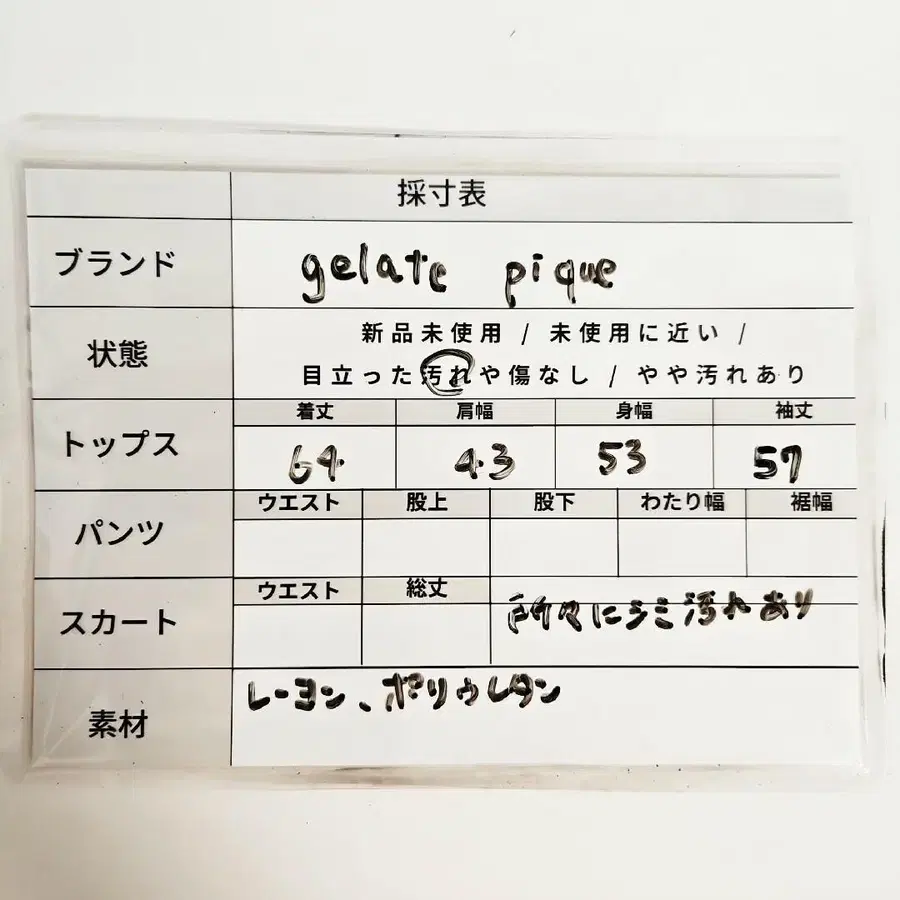 採寸表
ブランド gelate pique
状態 新品未使用 / 未使用に近い /
目立った汚れや傷なし / やや汚れあり
着丈 肩幅 身幅 袖丈
トップス 64 43 53 57
ウエスト 股上 股下 わたり幅 裾幅
パンツ
ウエスト 総丈
スカート 所々にシミ汚れあり
素材 レーヨン、ポリウレタン